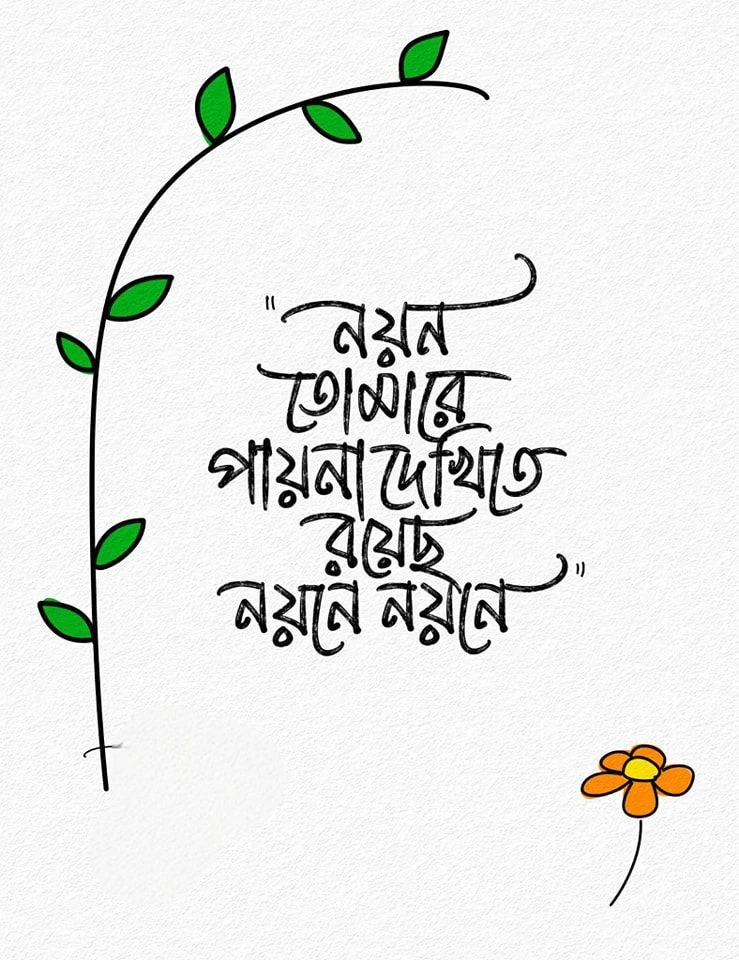 "নয়ন
তোমারে
পায়না দেখিতে
রয়েছ
নয়নে নয়নে"